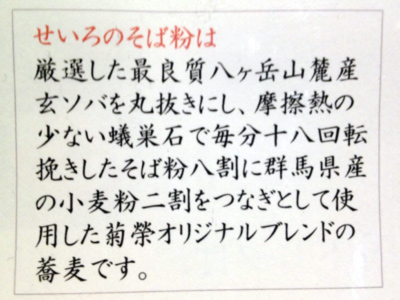 せいろのそば粉は
厳選した最良質八ヶ岳山麓産
玄ソバを丸抜きにし、摩擦熱の
少ない蟻巣石で毎分十八回転
挽きしたそば粉八割に群馬県産
の小麦粉二割をつなぎとして使
用した菊榮オリジナルブレンドの
蕎麦です。